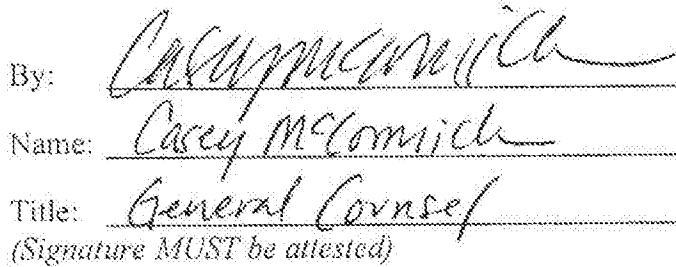 By: Casey McCormick
Name: Casey McCormick
Title: General Counsel
(Signature MUST be attested)